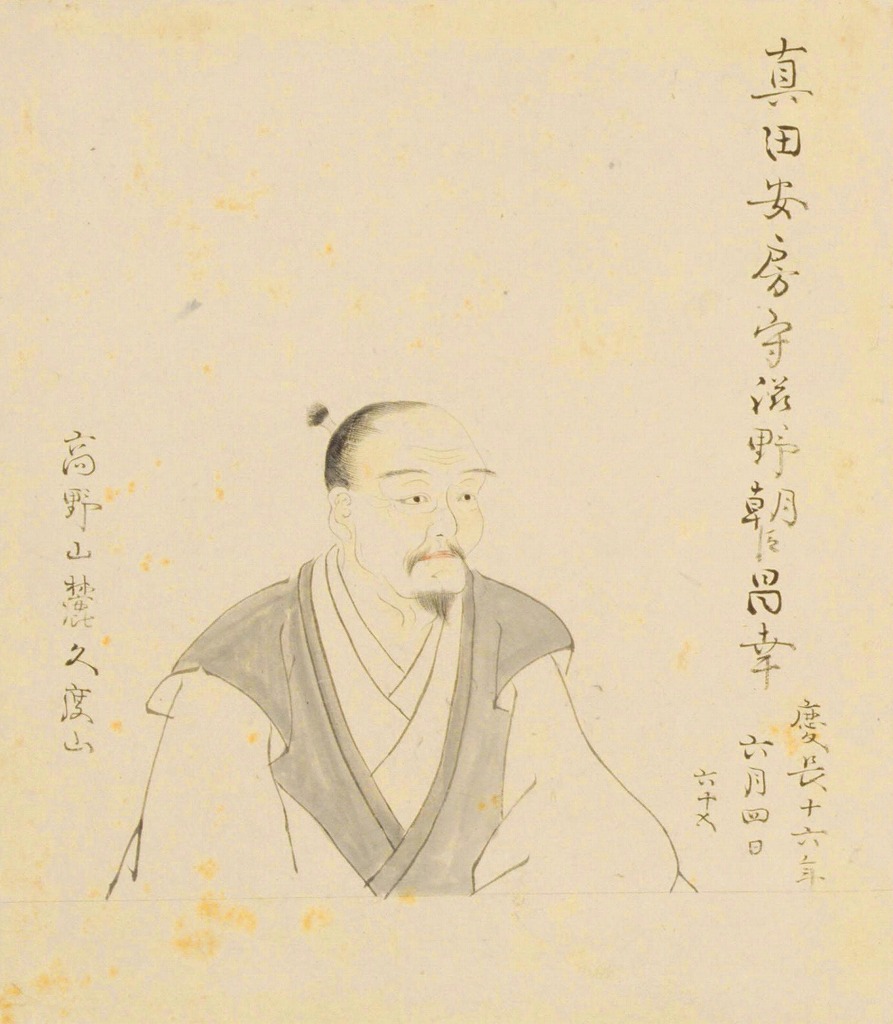 真田安房守滋野朝臣昌幸
慶長十六年
六月四日
六十
高野山麓久度山